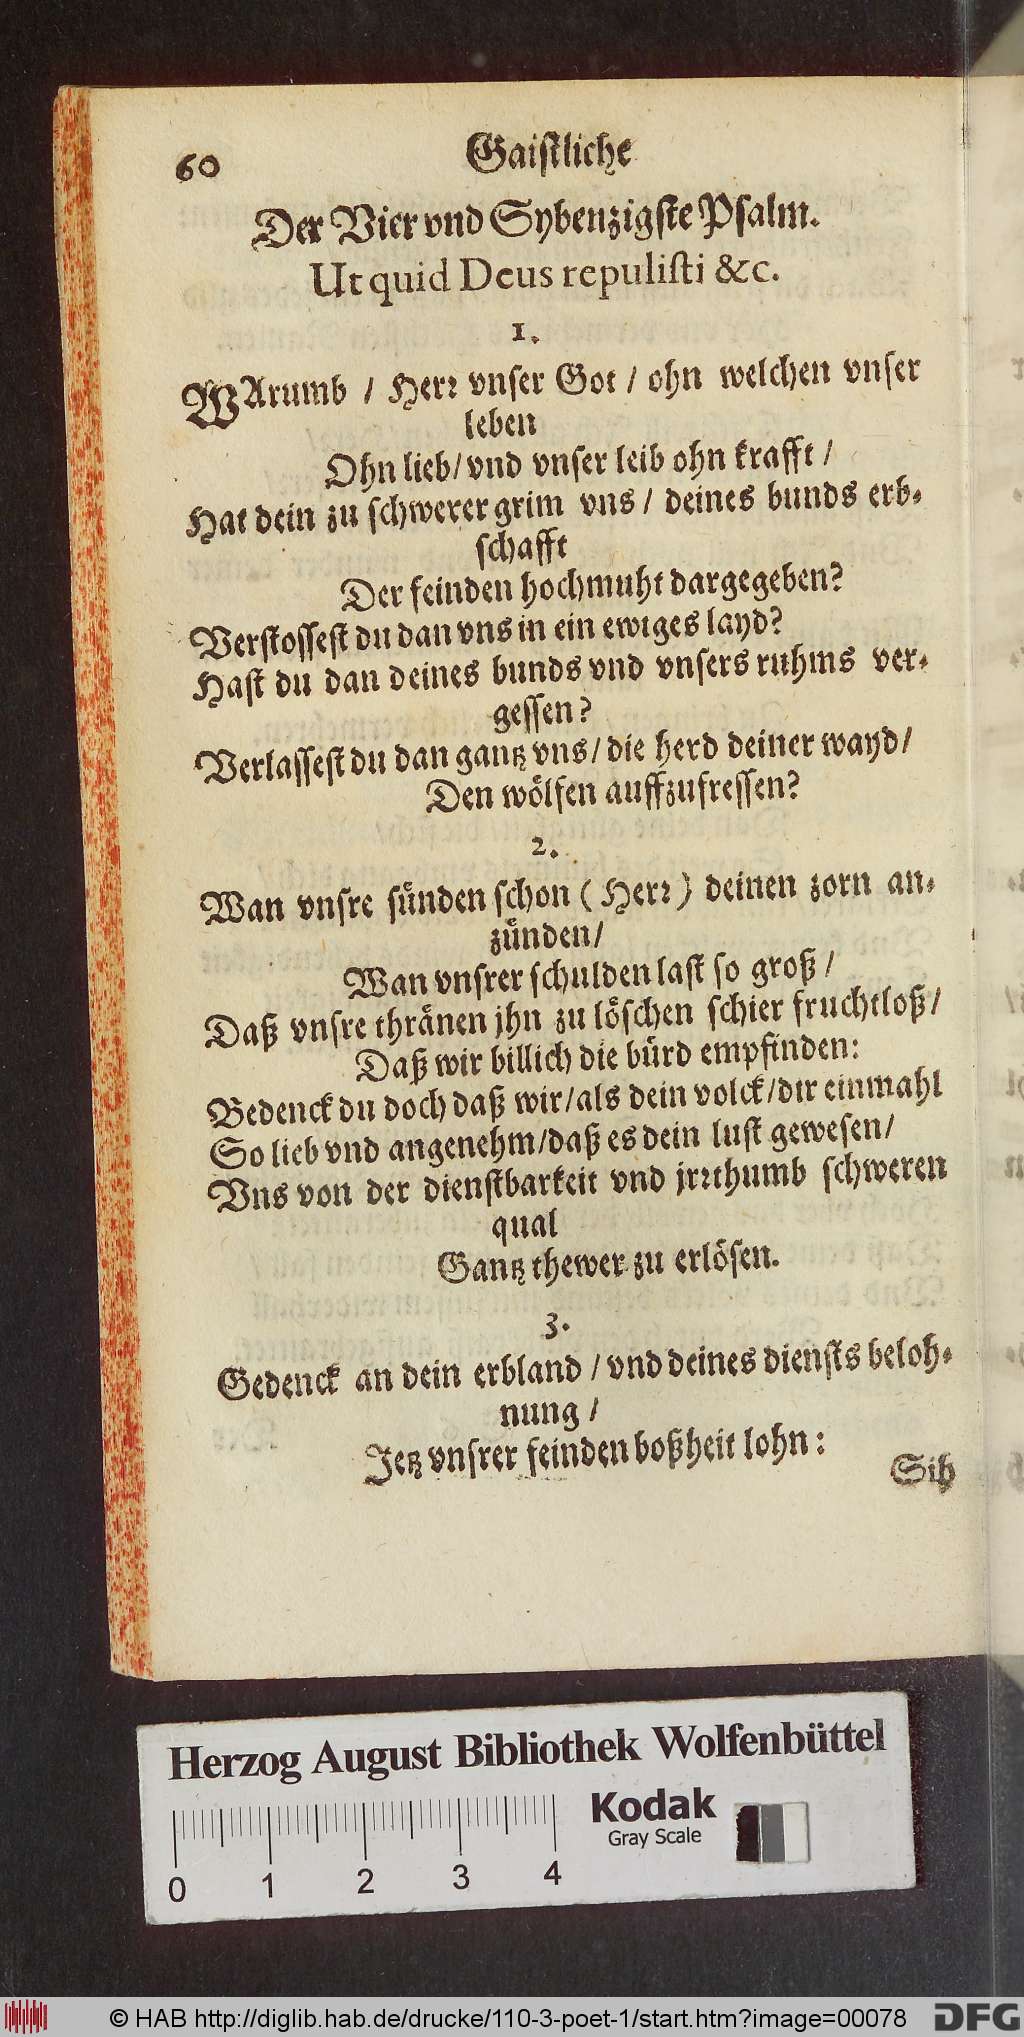 60
Gaistliche
Der Vier vnd Sybenzigste Psalm.
Ut quid Deus repulisti &c.
1.
WArumb / Herr vnser Got / ohn welchen vnser
leben
Ohn lieb/ vnd vnser leib ohn krafft /
Hat dein zu schwerer grim vns / deines bunds erb-
schafft
Der feinden hochmuht dargegeben?
Verstossest du dan vns in ein ewiges layd?
Hast du dan deines bunds vnd vnsers ruhms ver-
gessen?
Verlassest du dan gantz vns/ die herd deiner wayd/
Den wölfen auffzufressen?
2.
Wan vnsre sünden schon ( Herr ) deinen zorn an-
zünden/
Wan vnsrer schulden last so groß /
Daß vnsre thränen jhn zu löschen schier fruchtloß/
Daß wir billich die bürd empfinden:
Bedenck du doch daß wir/als dein volck/dir einmahl
So lieb vnd angenehm/daß es dein lust gewesen/
Vns von der dienstbarkeit vnd jrrthumb schweren
qual
Gantz thewer zu erlösen.
3.
Gedenck an dein erbland / vnd deines diensts beloh-
nung /
Jetz vnsrer feinden boßheit lohn:
Sih
Herzog August Bibliothek Wolfenbüttel
Kodak
Gray Scale
0 1 2 3 4
© HAB http://diglib.hab.de/drucke/110-3-poet-1/start.htm?image=00078
DFG